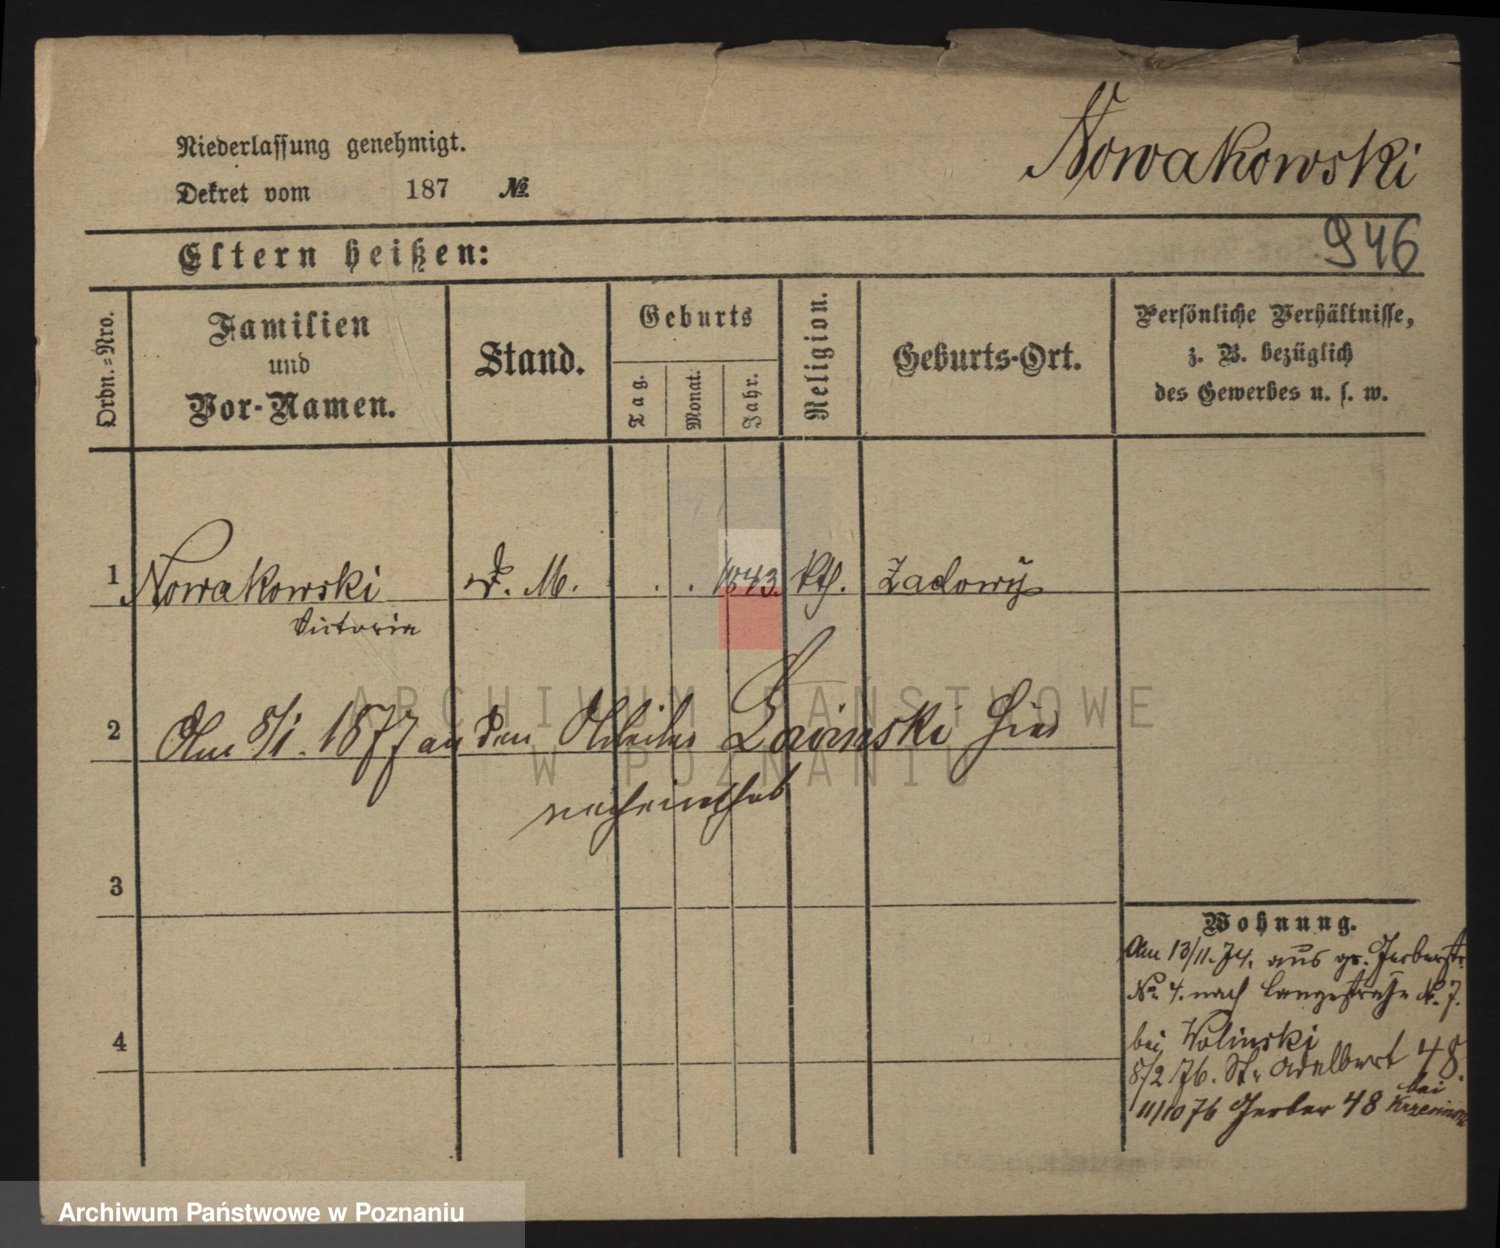 Nowakowski
Niederlassung genehmigt.
Dekret vom 187 №
946
Eltern heißen:
Ordn.-Nro.
Familien
und
Vor-Namen.
Stand.
Geburts
Tag.
Monat.
Jahr.
Religion.
Geburts-Ort.
Persönliche Verhältnisse,
z. B. bezüglich
des Gewerbes u. s. w.
1 Nowakowski D. M. . . 1843. kth. Zadowy
Victoria
2 Am 8/1. 1877 an den Arbeiter hier
verheirathet
3
4
Wohnung.
Am 13/11. 74. aus gr. Gerberstr.
No. 4. nach Langestraße N. 7.
bei Wolinski
8/2 76. St. Adalbert 48.
11/10 76 Gerber 48 bei
ARCHIWUM PAŃSTWOWE
W POZNANIU
Archiwum Państwowe w Poznaniu